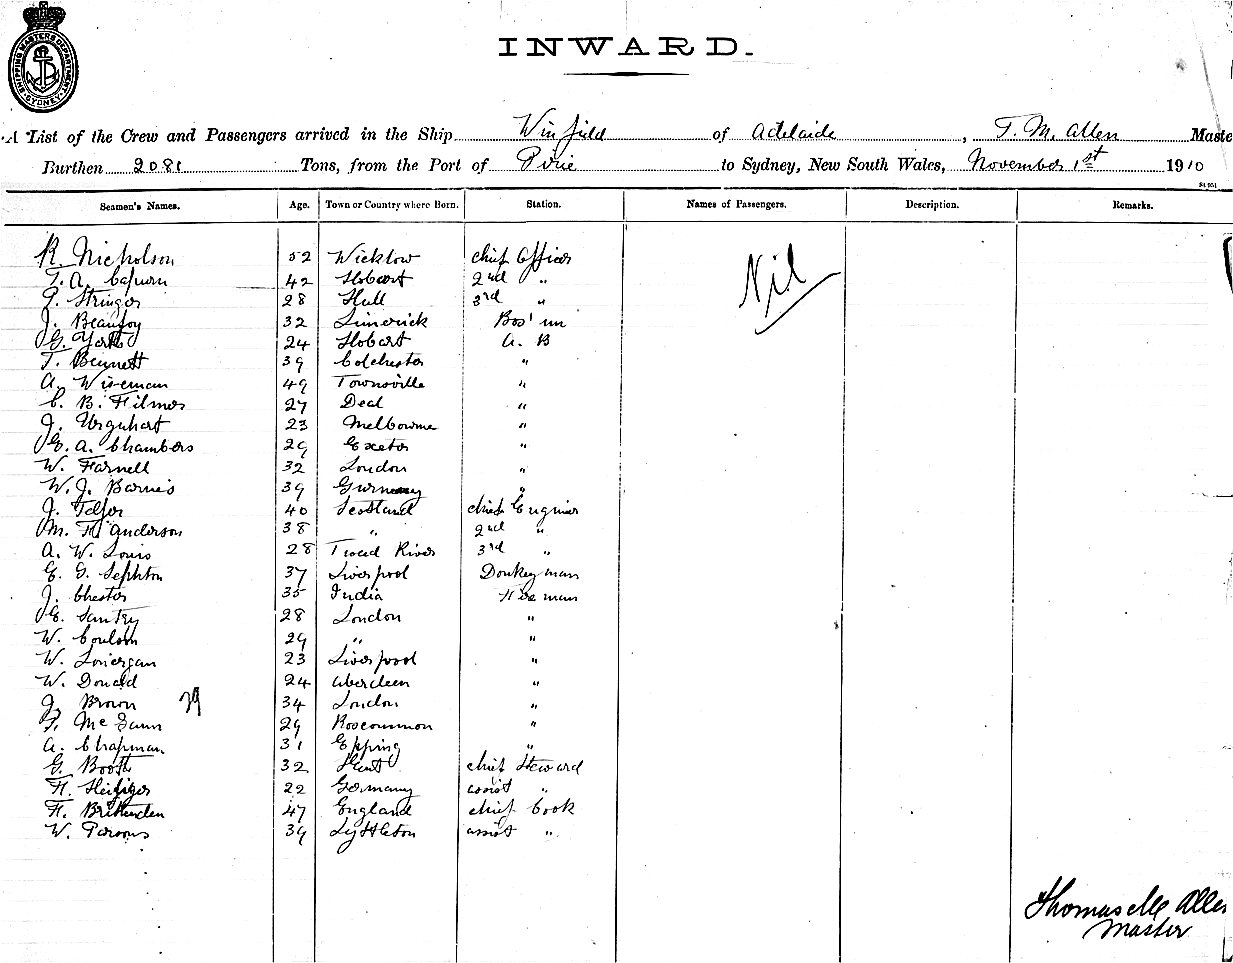 SHIPPING MASTERS DEPARTMENT SYDNEY
INWARD.
A List of the Crew and Passengers arrived in the Ship Winfield of Adelaide, T. M. Allen Maste
Burthen 2081 Tons, from the Port of Pirie to Sydney, New South Wales, November 1st 1910
Seamen's Names. Age. Town or Country where Born. Station. Names of Passengers. Description. Remarks.
R. Nicholson 52 Wicklow Chief Officer Nil
T. A. Capurn 42 Hobart 2nd "
P. Stringer 28 Hull 3rd "
J. Beaufoy 32 Limerick Bos'un
G. York 24 Hobart A. B
T. Bennett 39 Colchester "
A. Wiseman 49 Townsville "
C. B. Filmer 27 Deal "
J. Urquhart 23 Melbourne "
E. A. Chambers 29 Exeter "
W. Farnell 32 London "
W. J. Barnes 39 Gurnesey "
J. Telfor 40 Scotland Chief Enginer
M. H. Anderson 38 " 2nd "
A. W. Louis 28 Tweed River 3rd "
E. G. Sephton 37 Liverpool Donkeyman
J. Chester 35 India Fireman
E. Santry 28 London "
W. Coulson 29 " "
W. Lonergan 23 Liverpool "
W. Donald 24 Aberdeen "
J. Brown 34 London "
P. McGann 29 Roscommon "
A. Chapman 31 Epping "
G. Booth 32 Kent Chief Steward
H. 22 Germany assist "
H. Brittenden 47 England Chief Cook
W. Parsons 39 Lyttleton assist "
Thomas M Allen
Master